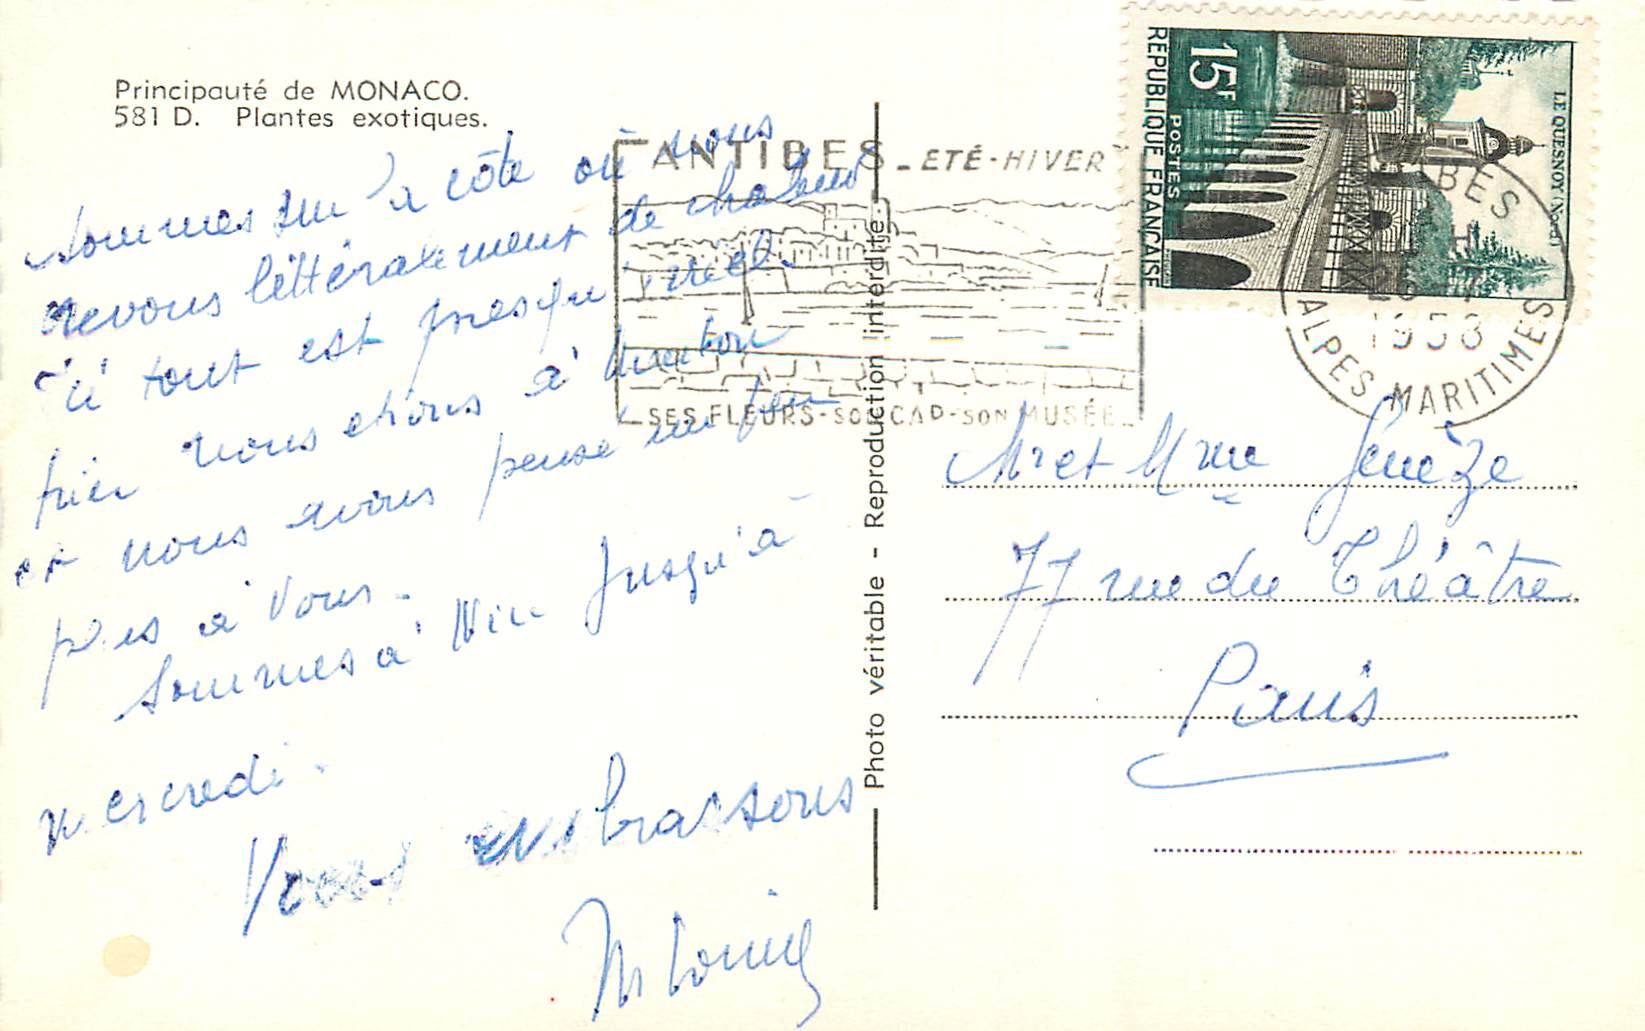 Principauté de MONACO.
581 D. Plantes exotiques.
sommes sur la côte où nous
crevons littéralement de chaleur
ici tout est presqu'irréel
hier nous étions à Menton
et nous avons pensé un peu
près à Vous.
Sommes à Nice jusqu'à
mercredi.
Vous embrassons
ANTIBES - ETÉ-HIVER
SES FLEURS-SON CAP-SON MUSÉE
Photo véritable - Reproduction interdite
15F
POSTES
REPUBLIQUE FRANÇAISE
LE QUESNOY (Nord)
ANTIBES
1958
ALPES MARITIMES
Mr et Mme Genèze
77 rue du Théâtre
Paris